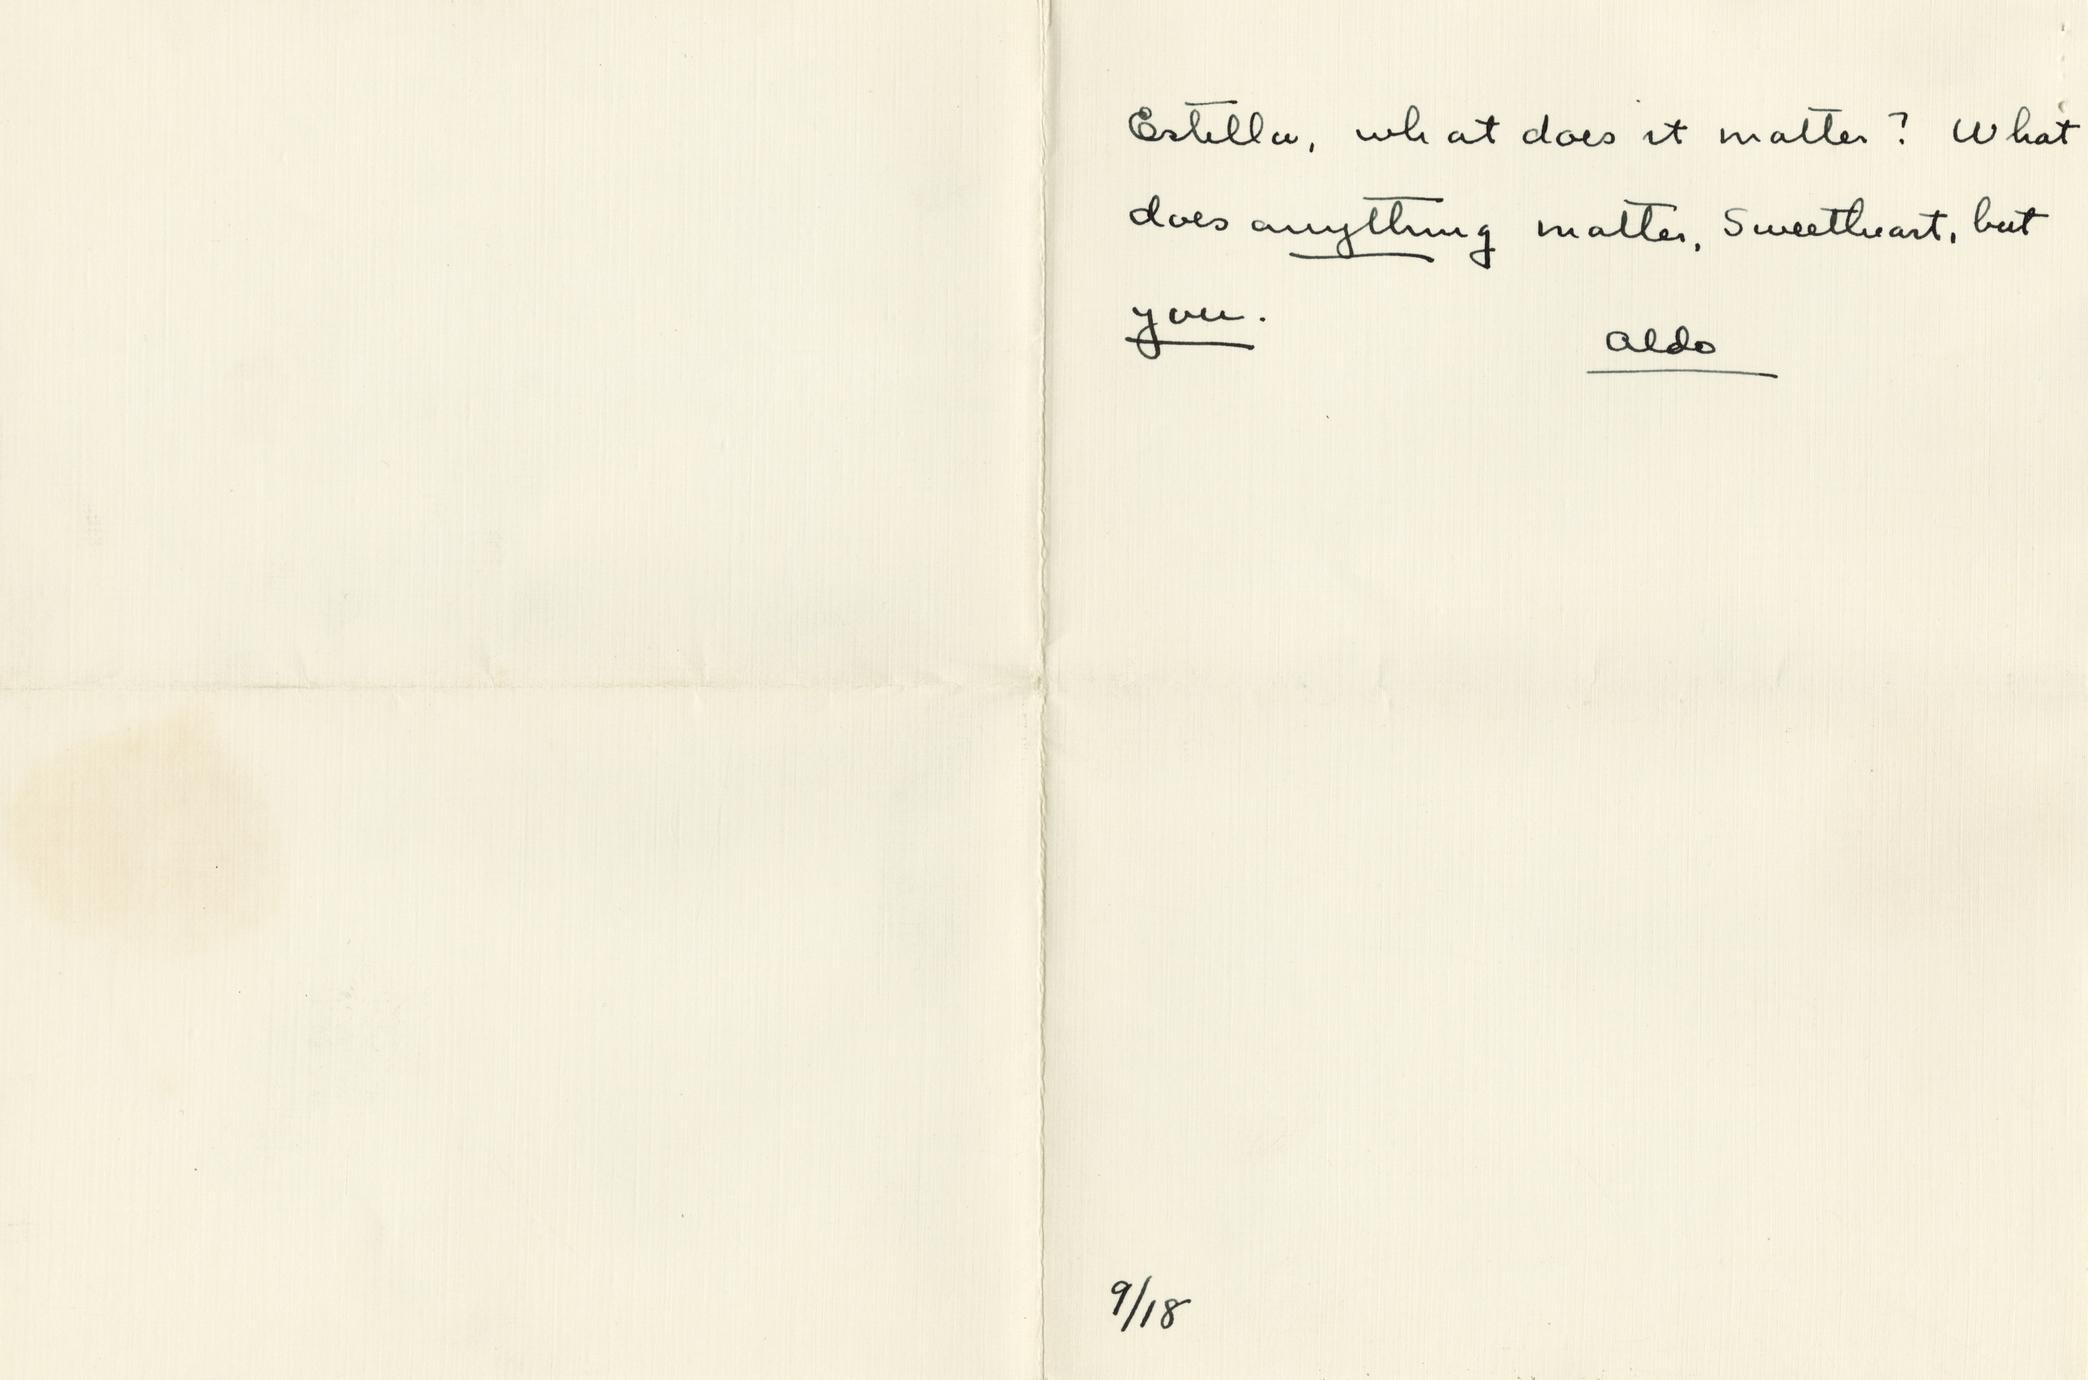 Estella, what does it matter? What
does anything matter, Sweetheart, but
you.
Aldo
9/18